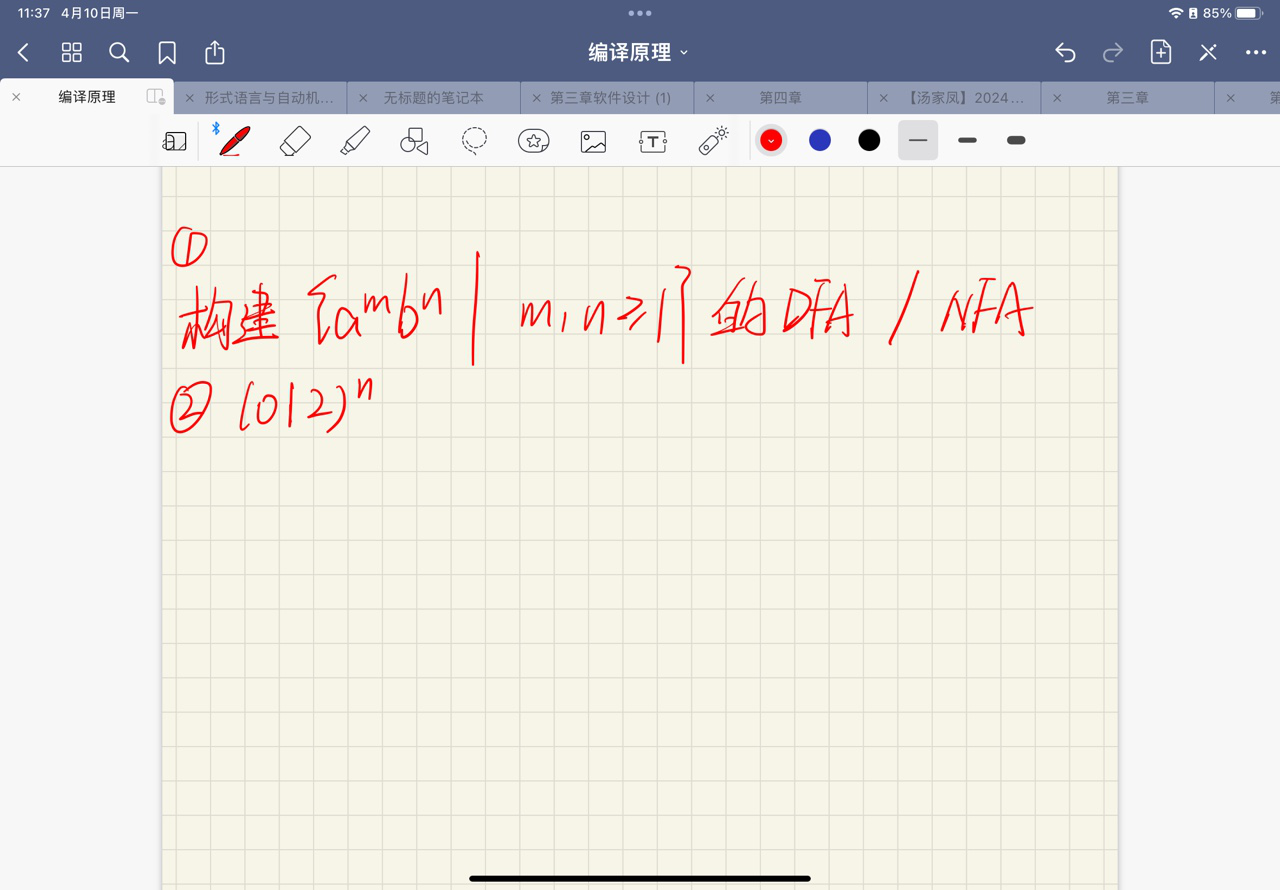 11:37 4月10日周一
85%
编译原理
编译原理
形式语言与自动机...
无标题的笔记本
第三章软件设计 (1)
第四章
【汤家凤】2024...
第三章
①
构建 {aᵐbⁿ | m,n≥1} 的 DFA / NFA
② (0|2)ⁿ